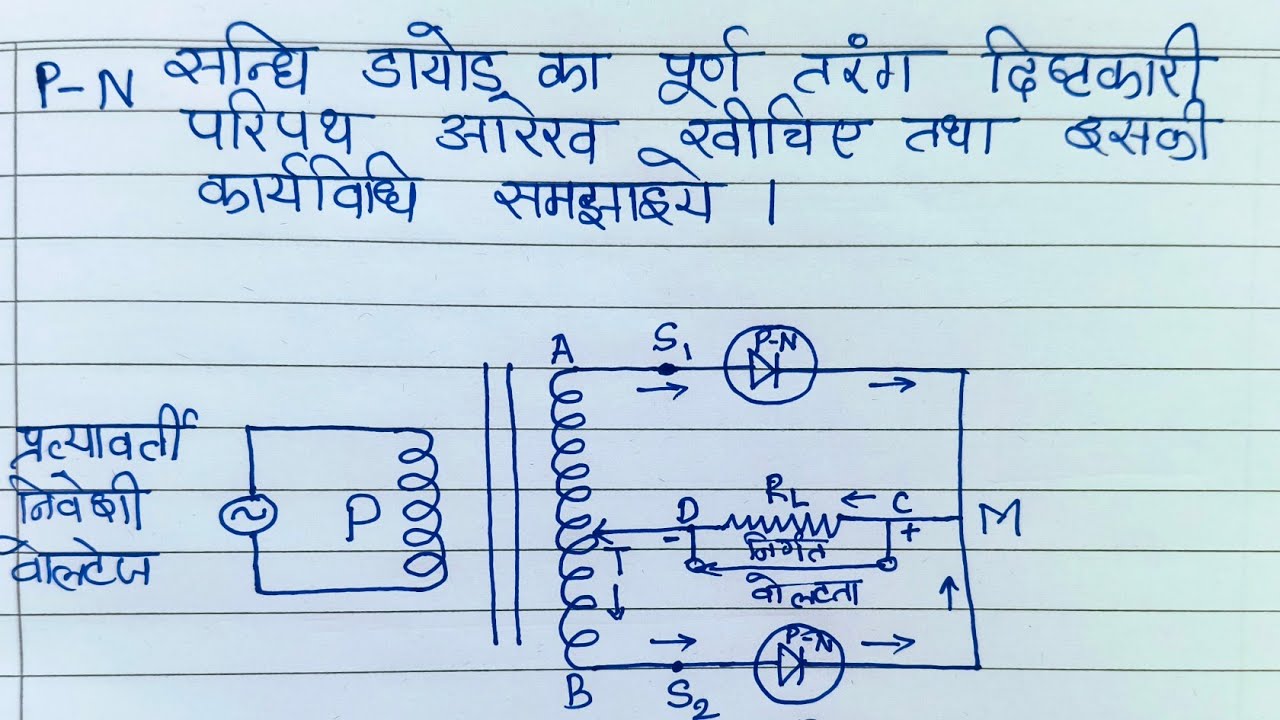 P-N सन्धि डायोड का पूर्ण तरंग दिष्टकारी
परिपथ आरेख खीचिए तथा इसकी
कार्यविधि समझाइये ।
A S₁ P-N
प्रत्यावर्ती
निवेशी
वोल्टेज
P
T
D
-
R_L
C
+
M
निर्गत
वोल्टता
B S₂ P-N